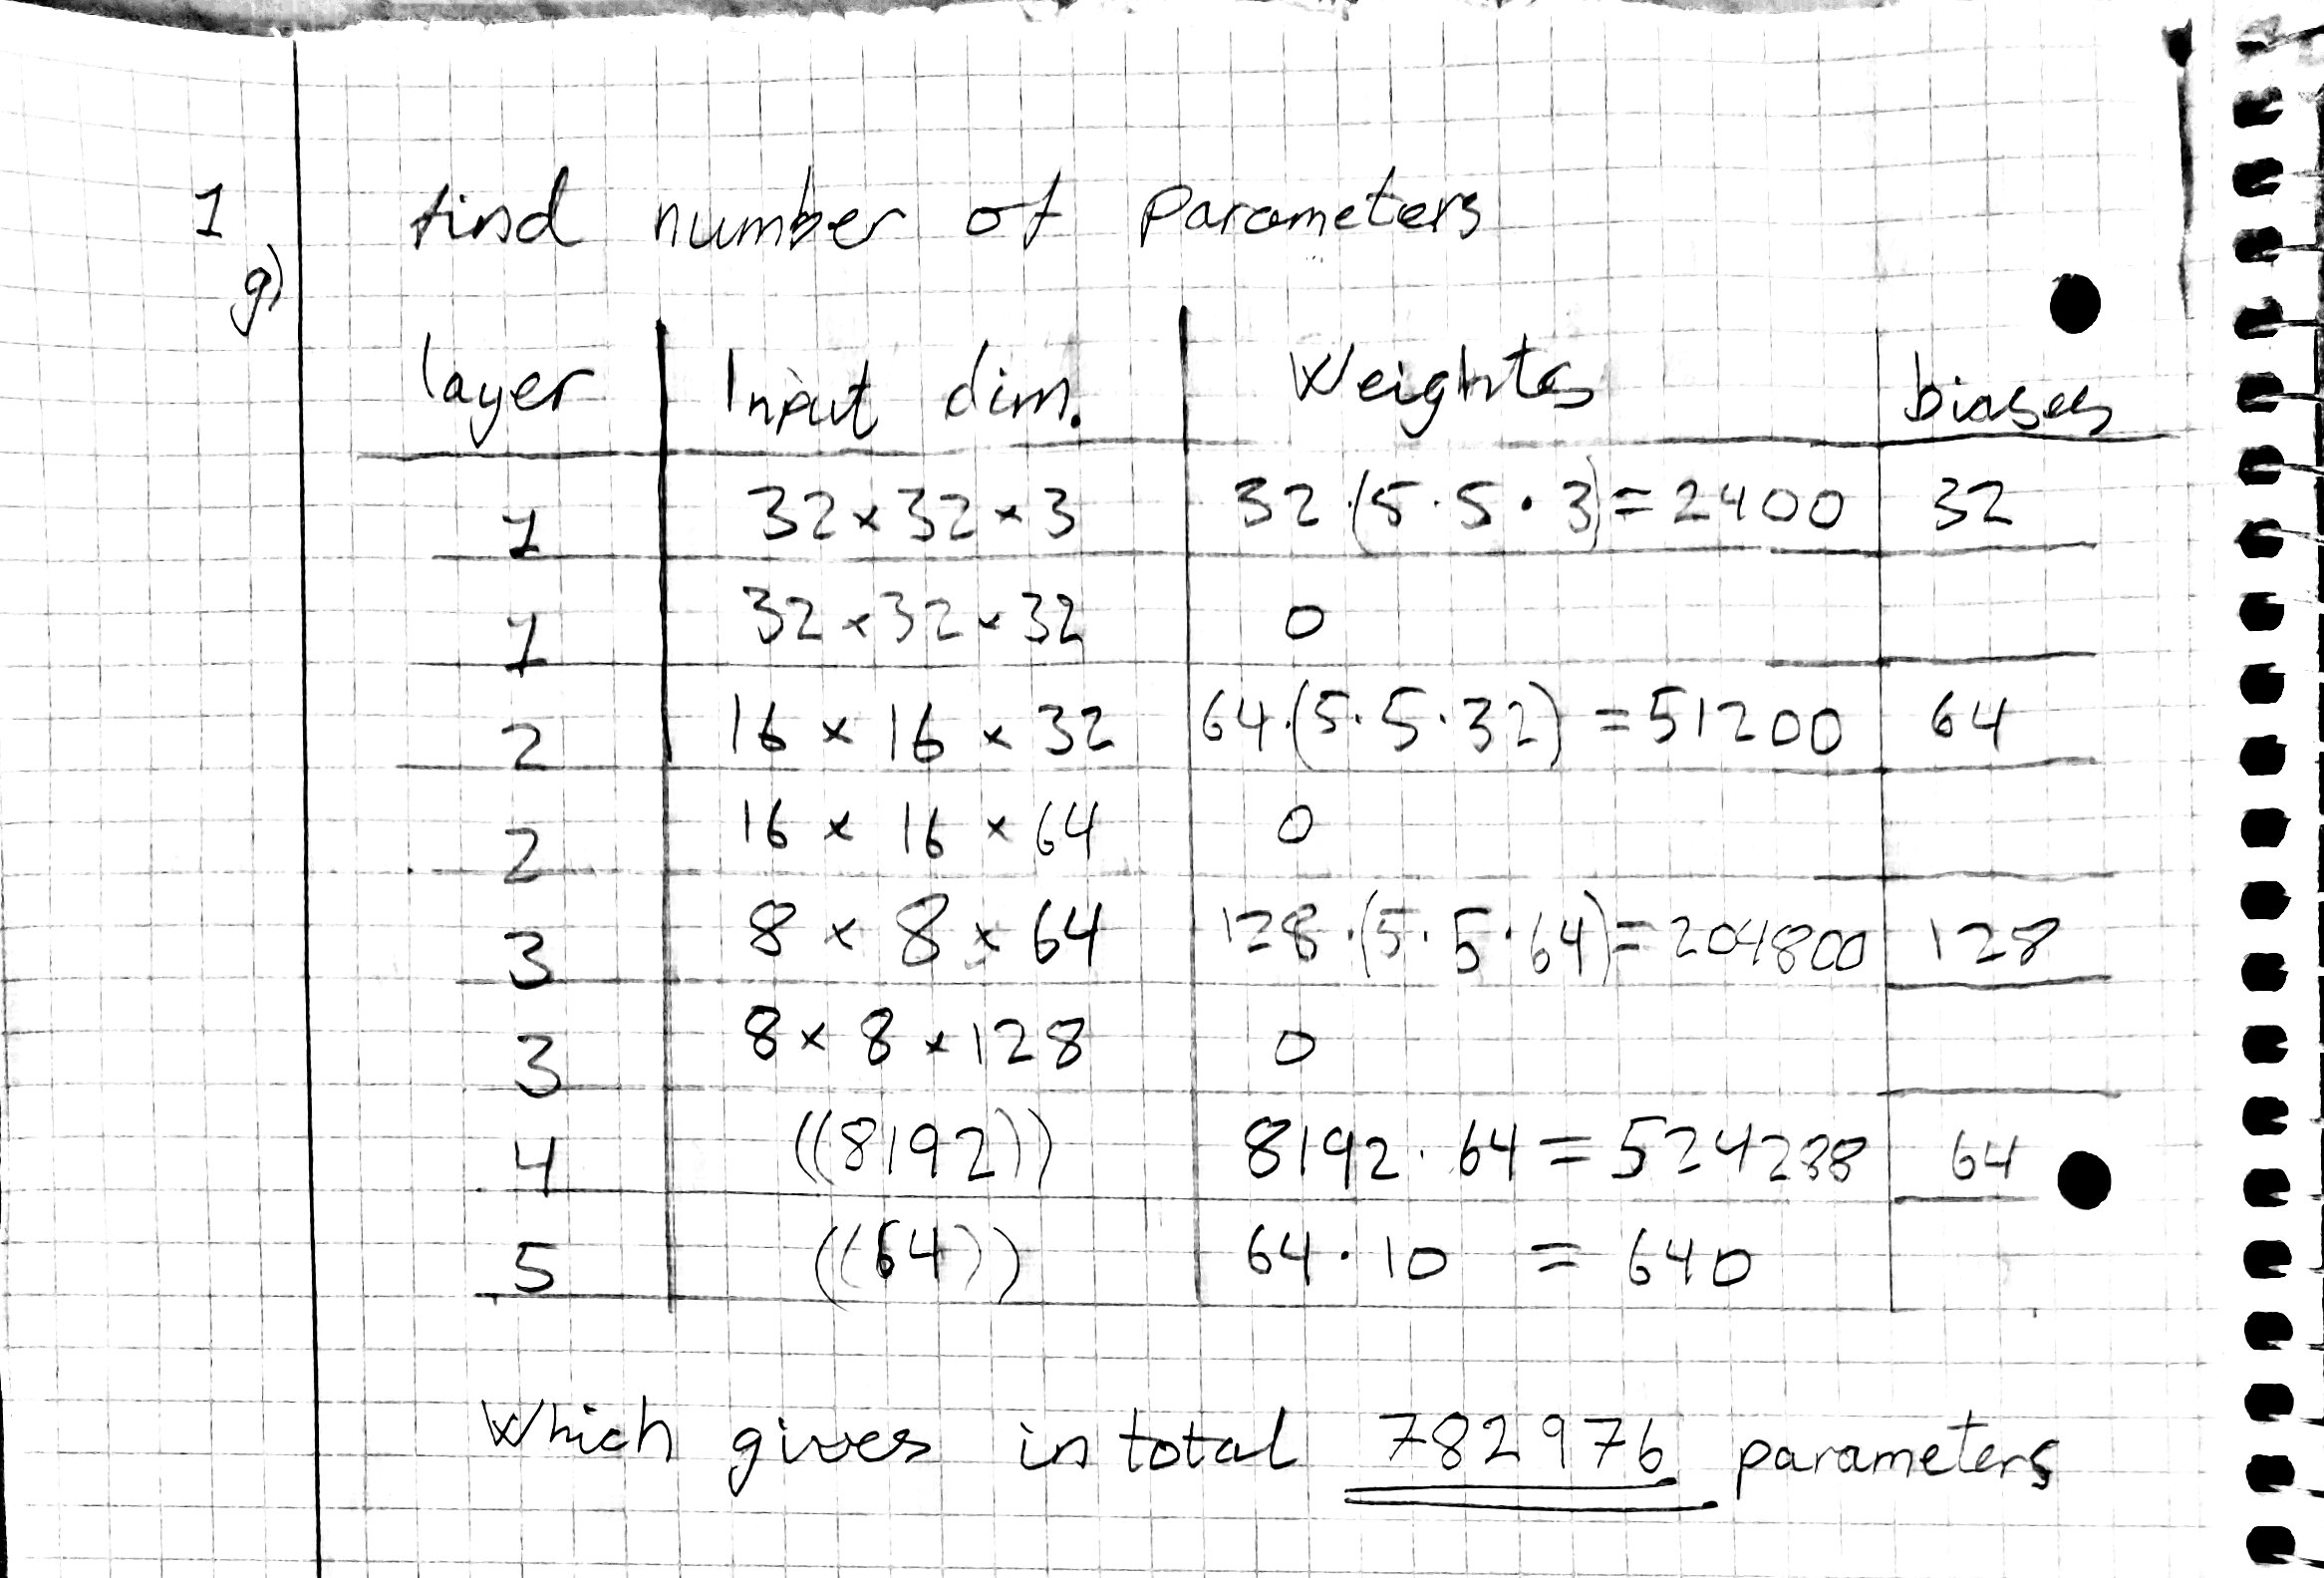 1 find number of parameters
g)
layer Input dim. Weights biases
1 32 × 32 × 3 32 · (5 · 5 · 3) = 2400 32
1 32 × 32 × 32 0
2 16 × 16 × 32 64 · (5 · 5 · 32) = 51200 64
2 16 × 16 × 64 0
3 8 × 8 × 64 128 · (5 · 5 · 64) = 204800 128
3 8 × 8 × 128 0
4 ((8192)) 8192 · 64 = 524288 64
5 ((64)) 64 · 10 = 640
Which gives in total 782976 parameters